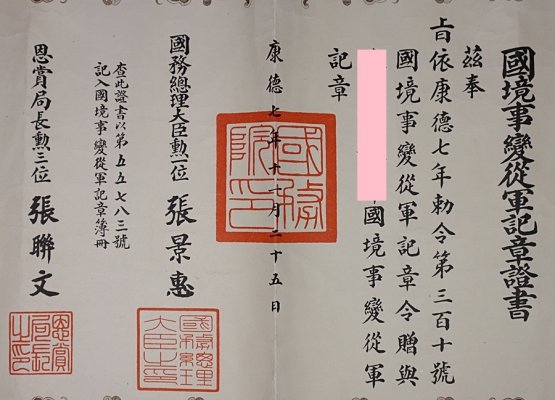 國境事變從軍記章證書
茲奉
上旨依康德七年勅令第三百十號
國境事變從軍記章令贈與
國境事變從軍
記章
康德七年十一月二十五日
國務院印
國務總理大臣勳一位 張景惠
國務總理大臣之印
查此證書以第五五七八三號
記入國境事變從軍記章簿冊
恩賞局長勳三位 張聯文
恩賞局長之印